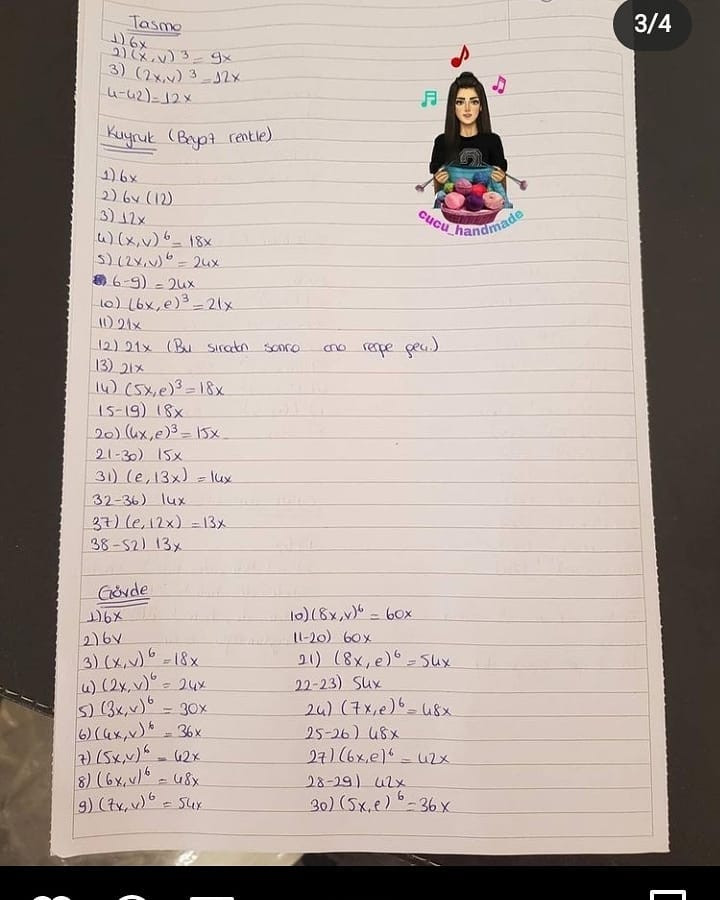 3/4
Tasma
1) 6x
2) (x,v)³ = 9x
3) (2x,v)³ = 12x
4-42) = 12x
Kuyruk (Beyaz renkle)
1) 6x
2) 6v (12)
3) 12x
4) (x,v)⁶ = 18x
5) (2x,v)⁶ = 24x
6-9) = 24x
10) (6x,e)³ = 21x
11) 21x
12) 21x (Bu sıradan sonra ana renge geç.)
13) 21x
14) (5x,e)³ = 18x
15-19) 18x
20) (4x,e)³ = 15x
21-30) 15x
31) (e,13x) = 14x
32-36) 14x
37) (e,12x) = 13x
38-52) 13x
Gövde
1) 6x
2) 6v
3) (x,v)⁶ = 18x
4) (2x,v)⁶ = 24x
5) (3x,v)⁶ = 30x
6) (4x,v)⁶ = 36x
7) (5x,v)⁶ = 42x
8) (6x,v)⁶ = 48x
9) (7x,v)⁶ = 54x
10) (8x,v)⁶ = 60x
11-20) 60x
21) (8x,e)⁶ = 54x
22-23) 54x
24) (7x,e)⁶ = 48x
25-26) 48x
27) (6x,e)⁶ = 42x
28-29) 42x
30) (5x,e)⁶ = 36x
cucu_handmade